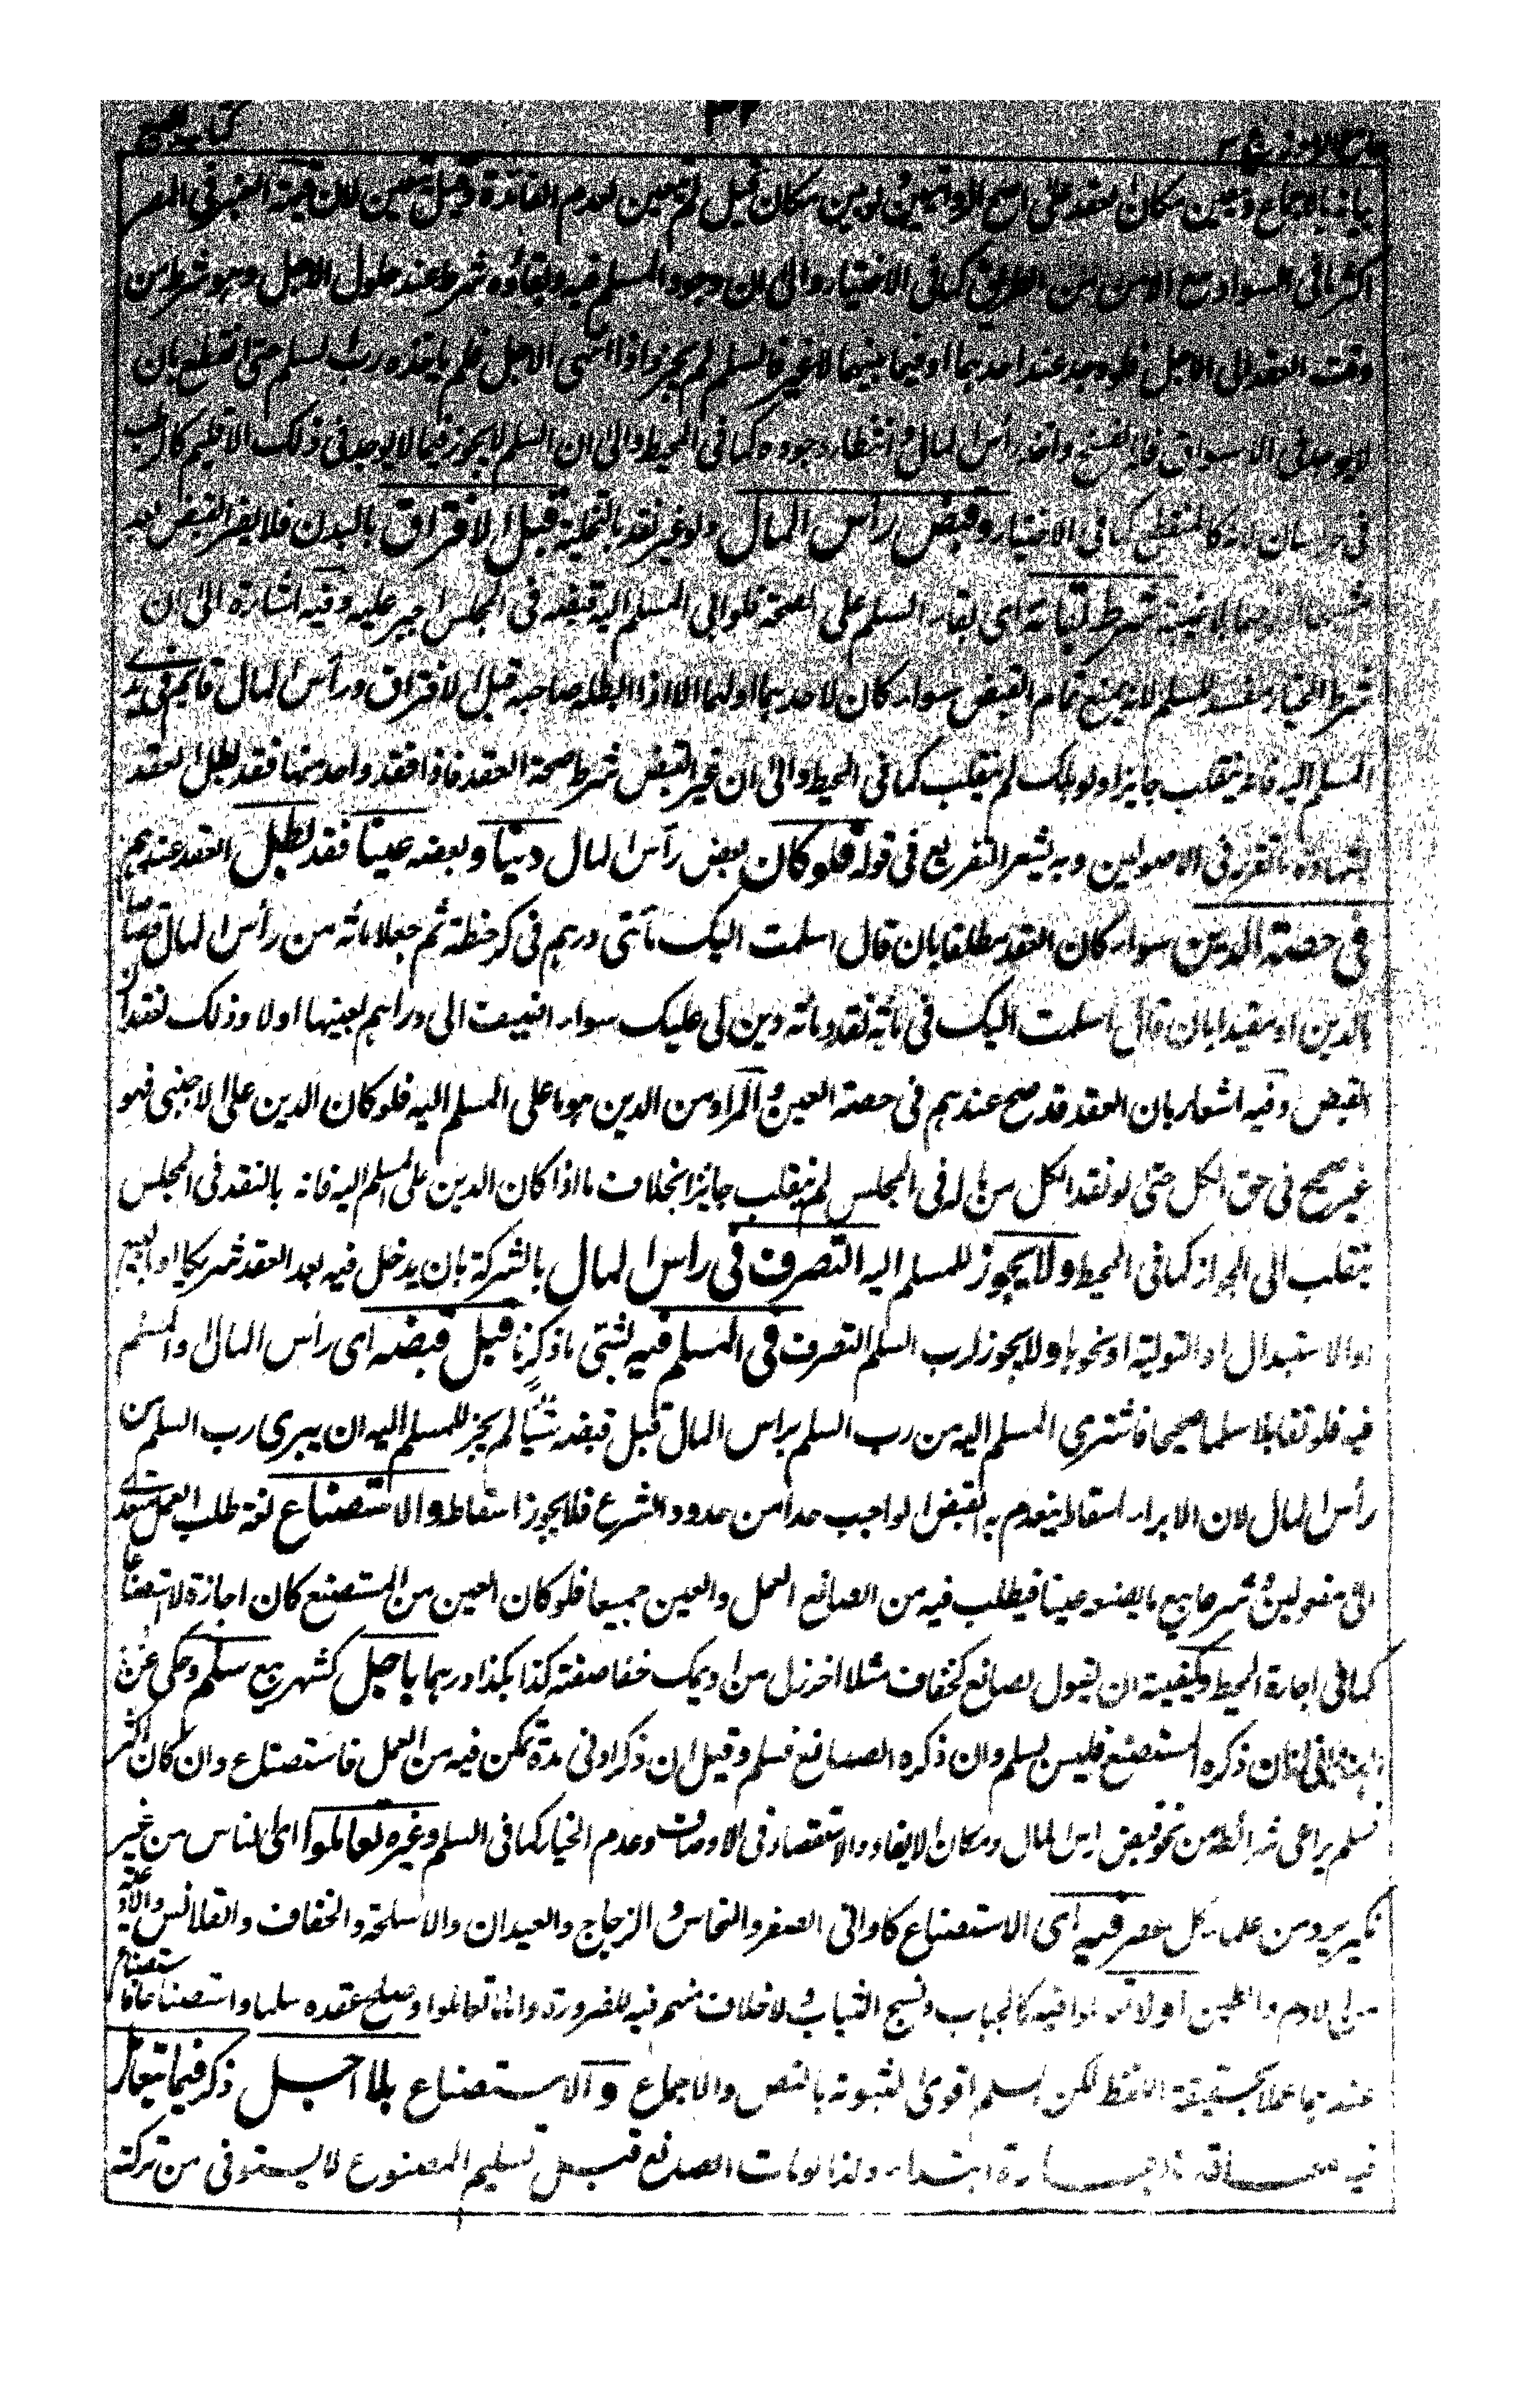 جامع الرموز ج ٣ ٣٢ كتاب البيع
بيانه بالاجماع وتعين مكان العقد على اصح الروايتين ولو عين مكان قيل لم يتعين لعدم الفائدة وقيل يتعين لان قيمة العنبر في المصر
اكثر مما في السواد مع الامن من الطريق كما في الاختيار والى ان وجود المسلم فيه وبقاؤه شرط عند حلول الاجل وهو شرط من
وقت العقد الى الاجل فلو وجد عند احدهما او فيما بينهما لا غير فالسلم لم يجز واذا انتهى الاجل فلم ياخذه رب السلم حتى انقطع بان
لا يوجد في الاسواق فله الفسخ واخذ رأس المال وانتظار وجوده كما في المحيط والى ان السلم لا يجوز فيما لا يوجد في ذلك الاقليم كالرطب
في خراسان لانه كالمنقطع كما في الاختيار وقبض رأس المال ولو غير نقد بالتخلية قبل الافتراق بالبدن فلا يضر القبض بعد
شرط بقائه اى بقاء السلم على الصحة فلو ابى المسلم اليه قبضه في المجلس اجبر عليه وفيه اشارة الى ان
شرط الخيار مفسد للسلم لانه يمنع تمام القبض سواء كان لاحدهما او لهما الا اذا ابطله صاحبه قبل الافتراق ورأس المال قائم في يدى
المسلم اليه فانه ينقلب جايزا ولو هلك لم ينقلب كما في المحيط والى ان غير القبض شرط صحة العقد فاذا فقد واحد منها فقد بطل العقد
بشهادة ما تقرر في الاصولين وبه يشعر التفريع في قوله فلو كان بعض رأس المال دينا وبعضه عينا فقد بطل العقد عندهم
في حصة الدين سواء كان العقد مطلقا بان قال اسلمت اليك مأتى درهم في كر حنطة ثم جعلا مائة من رأس المال قصاصا
بالدين او مقيدا بان قال اسلمت اليك في مائة نقد ومائة دين لى عليك سواء اضيفت الى دراهم بعينها اولا وذلك لفقدان
القبض وفيه اشعار بان العقد قد صح عندهم في حصة العين والمراد من الدين هو ما على المسلم اليه فلو كان الدين على الاجنبى فهو
غير صحيح في حق الكل حتى لو نقد الكل من ماله في المجلس لم ينقلب جايزا بخلاف ما اذا كان الدين على المسلم اليه فانه بالنقد في المجلس
ينقلب الى الجواز كما في المحيط ولا يجوز للمسلم اليه التصرف في راس المال بالشركة بان يدخل فيه بعد العقد شريكا او البيع
او الاستبدال او التولية او نحوها ولا يجوز لرب السلم التصرف في المسلم فيه لشئ ما ذكرنا قبل قبضه اى رأس المال والمسلم
فيه فلو تقابلا سلما صحيحا فاشترى المسلم اليه من رب السلم براس المال قبل قبضه شيئا لم يجز للمسلم اليه ان يبرى رب السلم من
رأس المال لان الابراء اسقاط ينعدم به القبض الواجب حدا من حدود الشرع فلا يجوز اسقاطه والاستصناع لغة طلب العمل متعدى
الى مفعولين وشرعا بيع ما يصنعه عينا فيطلب فيه من الصانع العمل والعين جميعا فلو كان العين من المستصنع كان اجازة لا استصناعا
كما في اجارة المحيط وكيفيته ان يقول لصانع كخفاف مثلا اخرزلى من اديمك خفا صفته كذا بكذا درهما باجل كشهر بيع سلم وحكى عن
الهندوانى ان ذكره المستصنع فليس بسلم وان ذكره الصانع فسلم وقيل ان ذكر ادنى مدة يمكن فيه من العمل فاستصناع وان كان اكثر
فسلم يراعى شرائطه من نحو قبض راس المال ومكان الايفاء والاستقصاء في الاوصاف وعدم الخيار كما في السلم وغيره تعاملوا اى الناس من غير
نكير يرد من علماء كل عصر فيه اى الاستصناع كاوانى الصفر والنحاس والزجاج والعيدان والاسلحة والخفاف والقلانس والاوعية
من الادم والطين اولا تعاملوا فيه كالجباب ونسج الثياب ولا خلاف منهم فيه للضرورة واما ما تعاملوا وصلح عقده سلما واستصناعا فاستصناع
عندهما عملا بحقيقة اللفظ لكن السلم اقوى لثبوته بالنص والاجماع والاستصناع بلا اجل ذكر فيما يتعامل
فيه معاقدة اجارة ابتداء ولذا لو مات الصانع قبل تسليم المصنوع لا يستوفى من تركته